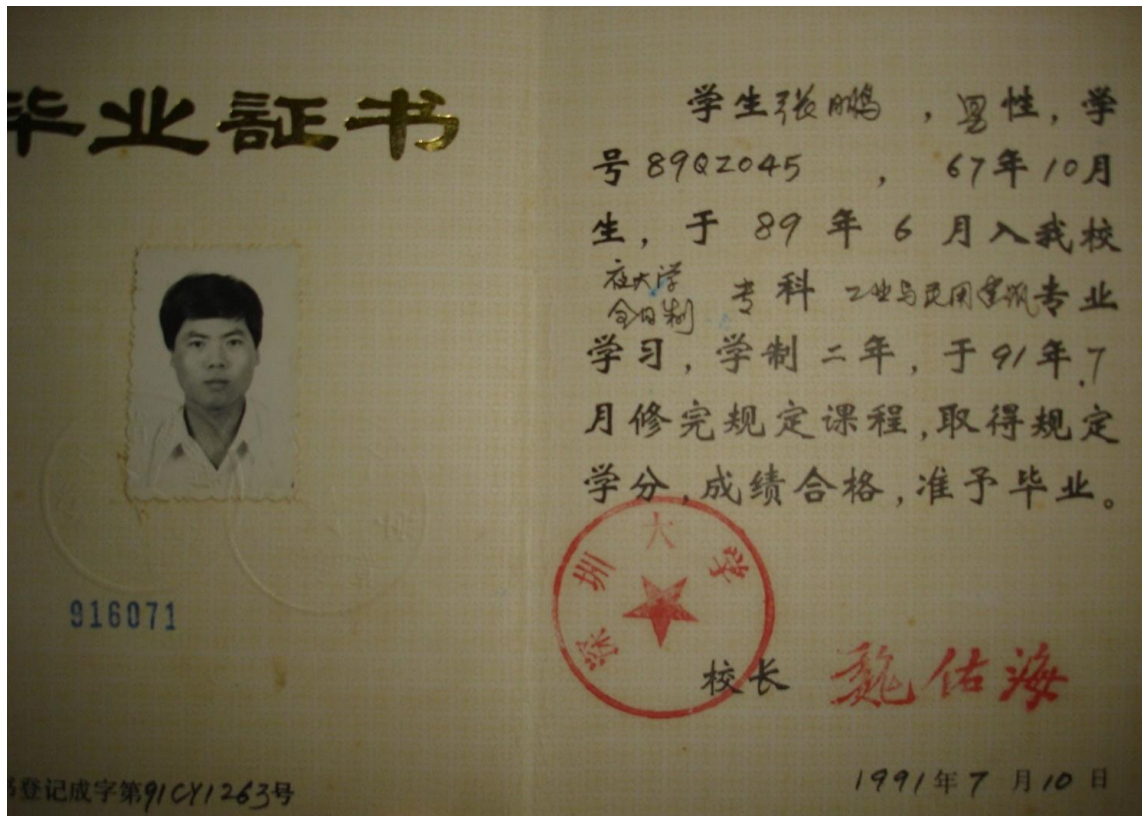 毕业証书
916071
书登记成字第91CY1263号
学生张鹏，男性，学
号89QZ045，67年10月
生，于89年6月入我校
夜大学
全日制 专科 工业与民用建筑专业
学习，学制二年，于91年7
月修完规定课程，取得规定
学分，成绩合格，准予毕业。
深圳大学
校长 魏佑海
1991年7月10日